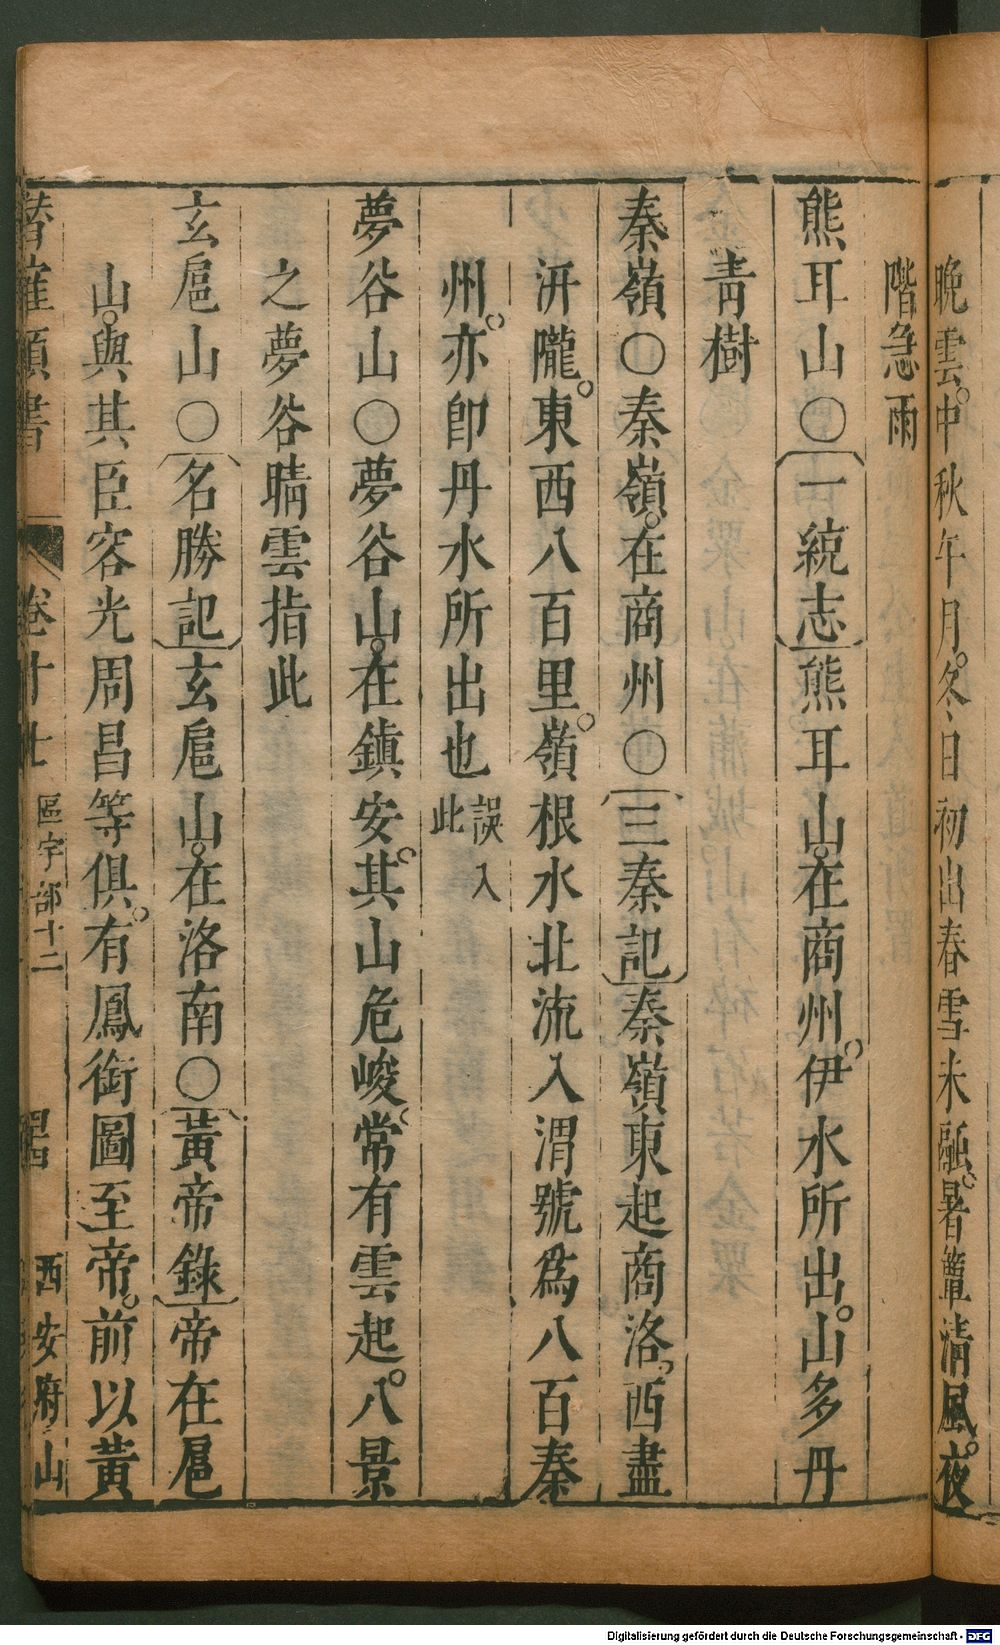 晚雲。中秋午月。冬日初出春雪未融。暑簟清風。夜
階急雨
熊耳山〇一統志熊耳山。在商州。伊水所出。山多丹
青樹
秦嶺〇秦嶺。在商州〇三秦記秦嶺東起商洛。西盡
汧隴。東西八百里。嶺根水北流入渭號為八百秦
州。亦即丹水所出也誤入此
夢谷山〇夢谷山。在鎮安。其山危峻。常有雲起。八景
之夢谷晴雲指此
玄扈山〇名勝記玄扈山。在洛南〇黃帝錄帝在扈
山。與其臣容光周昌等俱。有鳳銜圖至帝。前以黃
潛確類書 卷十七 區宇部十二 西安府山
Digitalisierung gefördert durch die Deutsche Forschungsgemeinschaft - DFG